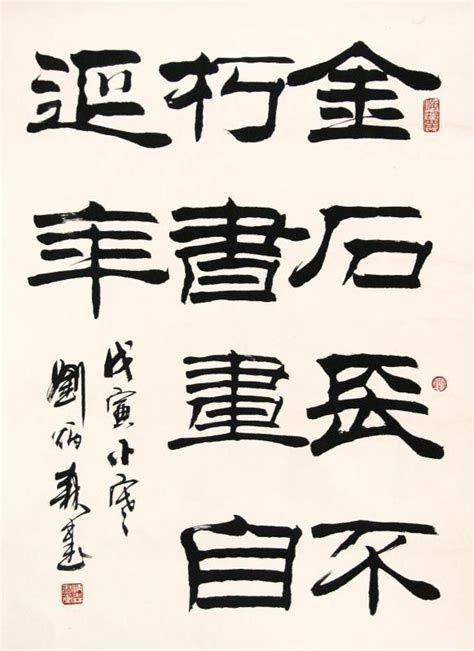 金石長不
朽書畫自
延年
戊寅小寒
劉炳森書